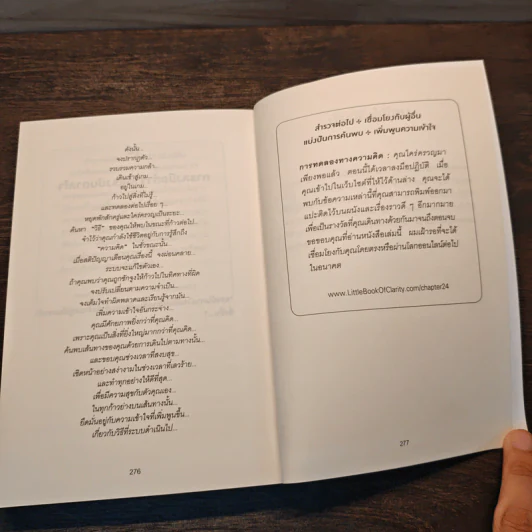 ดังนั้น...
จงปรากฏตัว...
รวบรวมความกล้า...
เดินเข้าสู่เกม...
อยู่ในเกม...
ก้าวไปสู่สิ่งที่ไม่รู้
และทดลองต่อไปเรื่อย ๆ...
หยุดพักสักครู่และใคร่ครวญเป็นระยะ...
ค้นหา "วิธี" ของคุณให้พบในขณะที่ก้าวต่อไป...
จำไว้ว่าคุณกำลังใช้ชีวิตอยู่กับการรู้สึกถึง
"ความคิด" ในชั่วขณะนั้น...
เมื่อสติปัญญาเตือนคุณเรื่องนี้ จงผ่อนคลาย...
ระบบจะแก้ไขตัวเอง...
ถ้าคุณพบว่าคุณถูกชักจูงให้ก้าวไปในทิศทางที่ผิด
จงปรับเปลี่ยนตามความจำเป็น...
จงเต็มใจทำผิดพลาดและเรียนรู้จากมัน...
เพิ่มความเข้าใจอันกระจ่าง...
คุณมีศักยภาพยิ่งกว่าที่คุณคิด...
เพราะคุณเป็นสิ่งที่ยิ่งใหญ่มากกว่าที่คุณคิด...
ค้นพบเส้นทางของคุณด้วยการเดินไปตามทางนั้น...
และขอบคุณช่วงเวลาที่สงบสุข...
เชิดหน้าอย่างสง่างามในช่วงเวลาที่เลวร้าย...
และทำทุกอย่างให้ดีที่สุด...
เพื่อมีความสุขกับตัวคุณเอง...
ในทุกก้าวย่างบนเส้นทางนั้น...
ยึดมั่นอยู่กับความเข้าใจที่เพิ่มพูนขึ้น...
เกี่ยวกับวิธีที่ระบบดำเนินไป...
276
สำรวจต่อไป ÷ เชื่อมโยงกับผู้อื่น
แบ่งปันการค้นพบ ÷ เพิ่มพูนความเข้าใจ
การทดลองทางความคิด : คุณใคร่ครวญมา
เพียงพอแล้ว ตอนนี้ได้เวลาลงมือปฏิบัติ เมื่อ
คุณเข้าไปในเว็บไซต์ที่ให้ไว้ด้านล่าง คุณจะได้
พบกับข้อความเหล่านี้ที่คุณสามารถพิมพ์ออกมา
แปะติดไว้บนผนังและเรื่องราวดี ๆ อีกมากมาย
เพื่อเป็นรางวัลที่คุณเดินทางด้วยกันมาจนถึงตอนจบ
ขอขอบคุณที่อ่านหนังสือเล่มนี้ ผมเฝ้ารอที่จะได้
เชื่อมโยงกับคุณโดยตรงหรือผ่านโลกออนไลน์ต่อไป
ในอนาคต
www.LittleBookOfClarity.com/chapter24
277